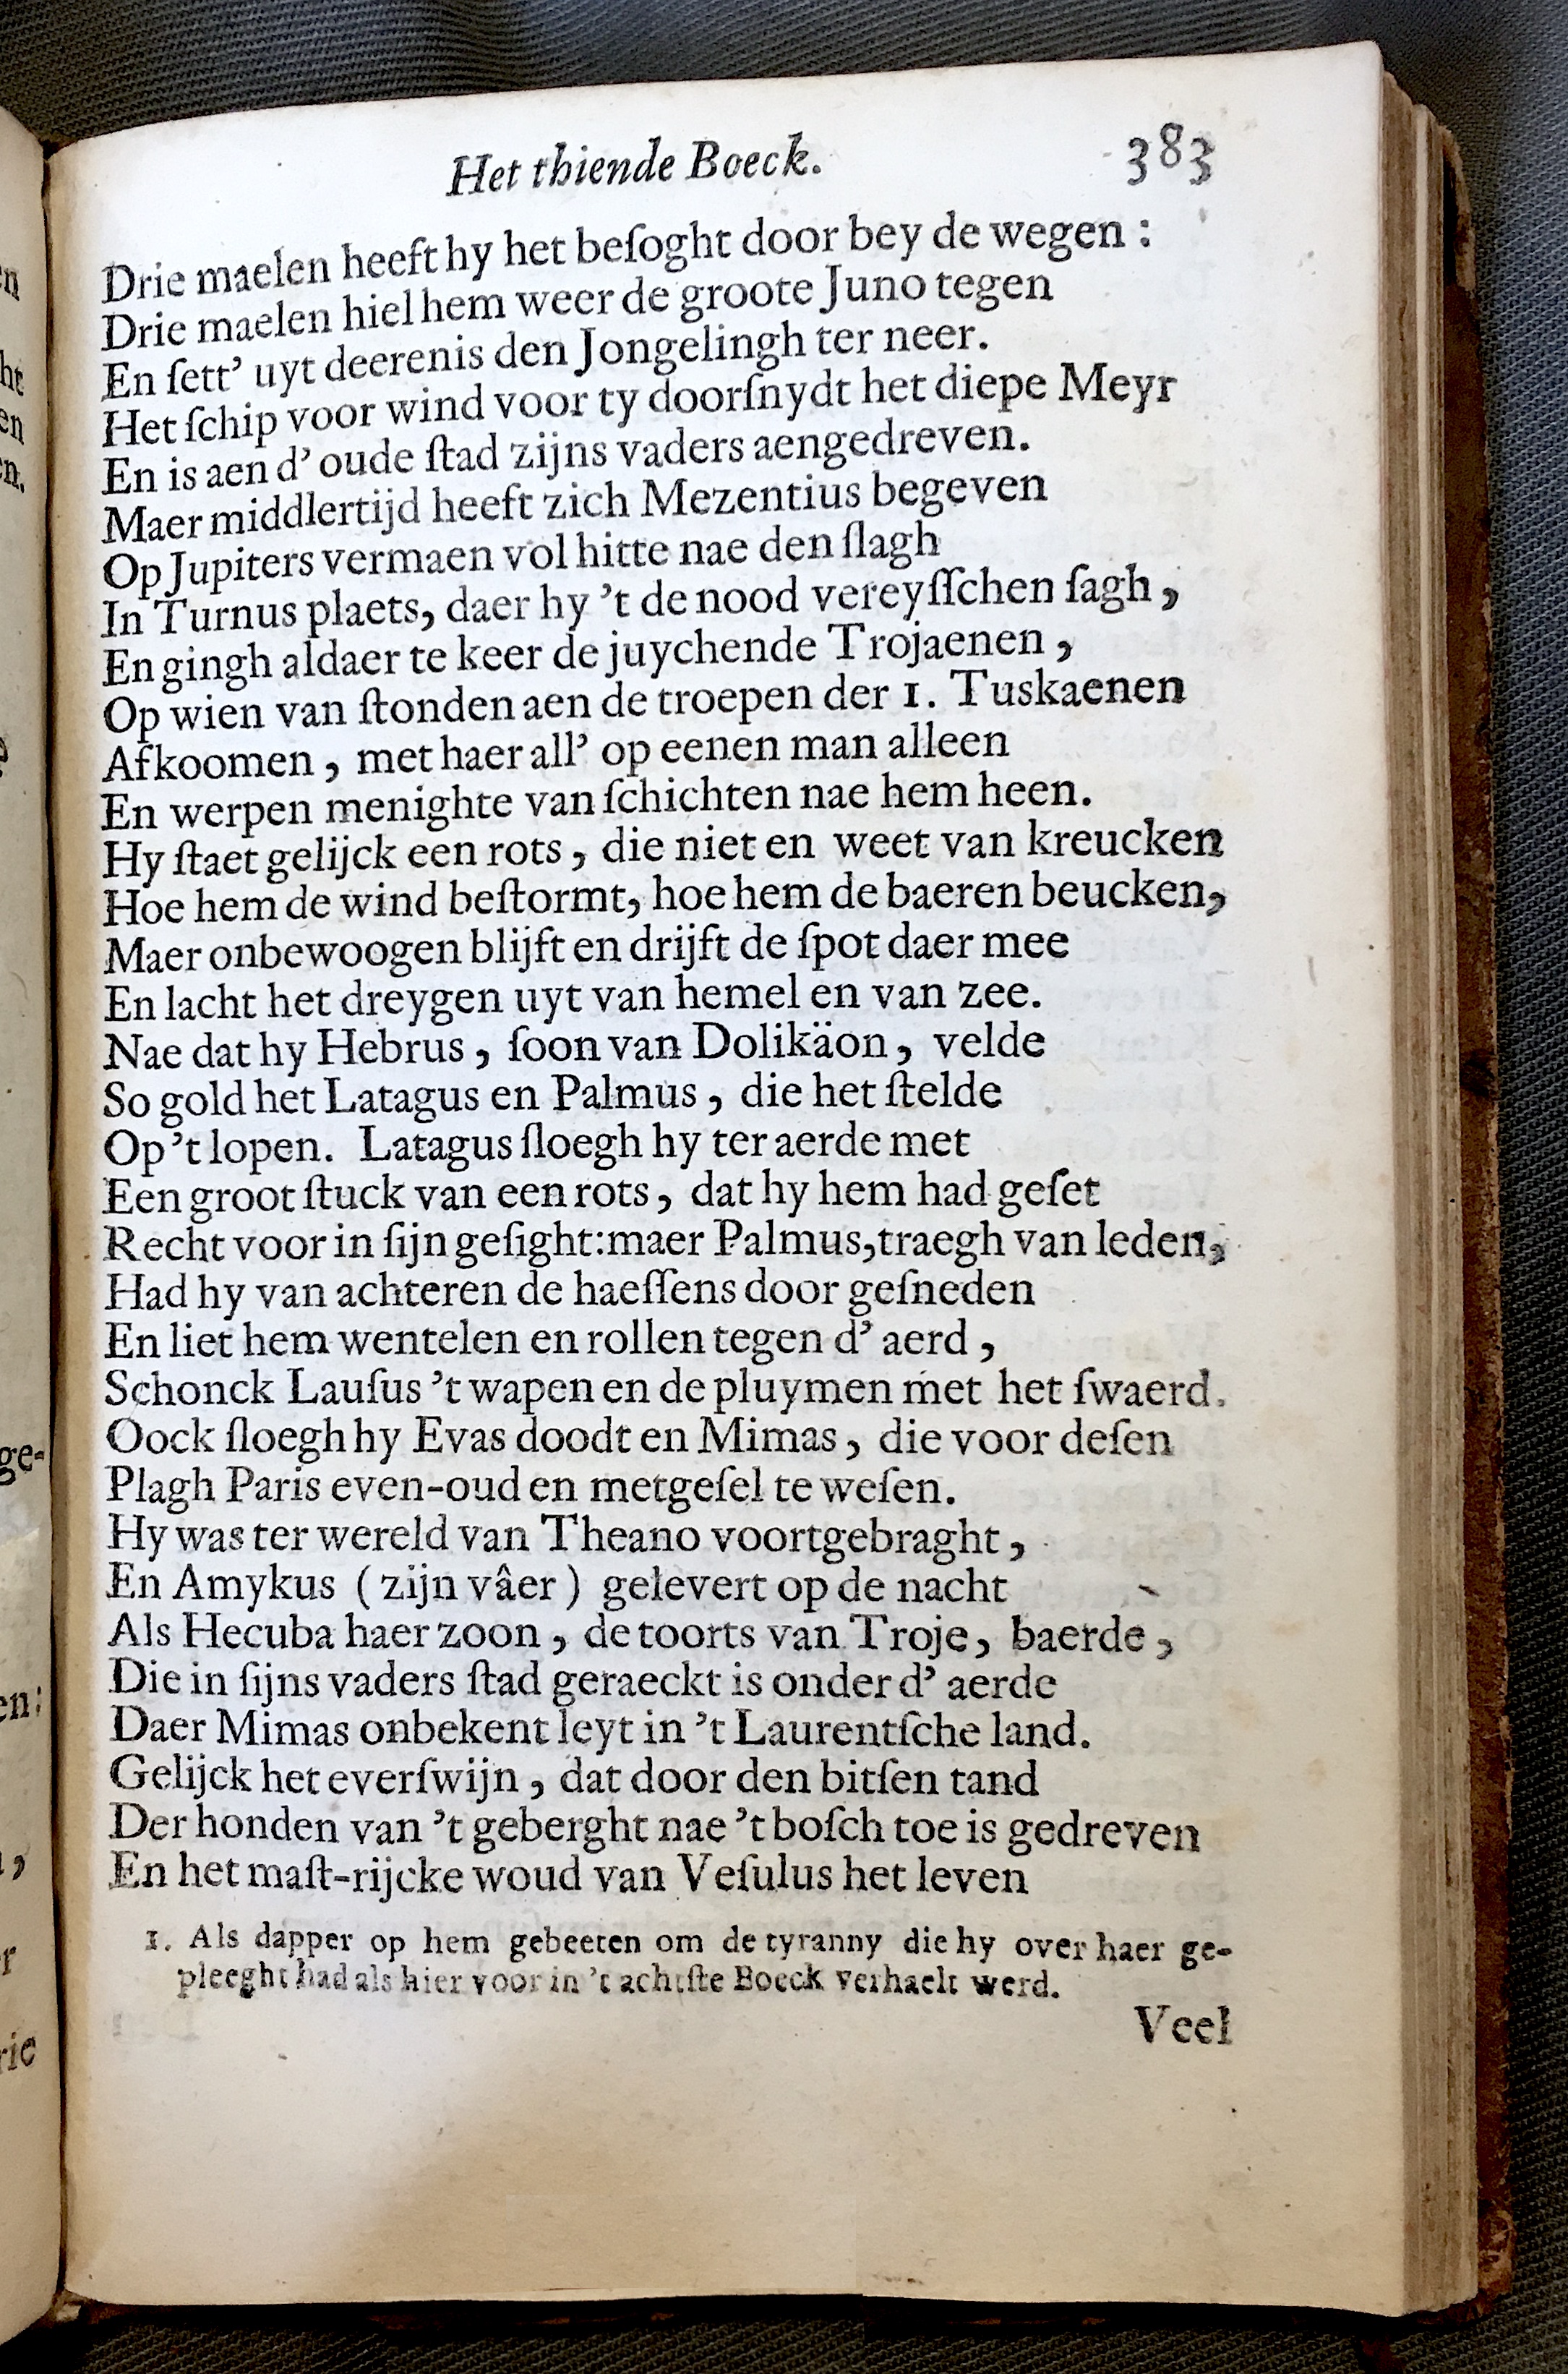 Het thiende Boeck. 383
Drie maelen heeft hy het beſoght door bey de wegen :
Drie maelen hiel hem weer de groote Juno tegen
En ſett’ uyt deerenis den Jongelingh ter neer.
Het ſchip voor wind voor ty doorſnydt het diepe Meyr
En is aen d’ oude ſtad zijns vaders aengedreven.
Maer middlertijd heeft zich Mezentius begeven
Op Jupiters vermaen vol hitte nae den ſlagh
In Turnus plaets, daer hy ’t de nood vereyſſchen ſagh ,
En gingh aldaer te keer de juychende Trojaenen ,
Op wien van ſtonden aen de troepen der 1. Tuskaenen
Afkoomen , met haer all’ op eenen man alleen
En werpen menighte van ſchichten nae hem heen.
Hy ſtaet gelijck een rots , die niet en weet van kreucken
Hoe hem de wind beſtormt, hoe hem de baeren beucken,
Maer onbewoogen blijft en drijft de ſpot daer mee
En lacht het dreygen uyt van hemel en van zee.
Nae dat hy Hebrus , ſoon van Dolikäon , velde
So gold het Latagus en Palmus , die het ſtelde
Op ’t lopen. Latagus ſloegh hy ter aerde met
Een groot ſtuck van een rots , dat hy hem had geſet
Recht voor in ſijn geſight:maer Palmus,traegh van leden,
Had hy van achteren de haeſſens door geſneden
En liet hem wentelen en rollen tegen d’ aerd ,
Schonck Lauſus ’t wapen en de pluymen met het ſwaerd.
Oock ſloegh hy Evas doodt en Mimas , die voor deſen
Plagh Paris even-oud en metgeſel te weſen.
Hy was ter wereld van Theano voortgebraght ,
En Amykus ( zijn vâer ) gelevert op de nacht
Als Hecuba haer zoon , de toorts van Troje, baerde ,
Die in ſijns vaders ſtad geraeckt is onder d’ aerde
Daer Mimas onbekent leyt in ’t Laurentſche land.
Gelijck het everſwijn , dat door den bitſen tand
Der honden van ’t geberght nae ’t boſch toe is gedreven
En het maſt-rijcke woud van Veſulus het leven
1. Als dapper op hem gebeeten om de tyranny die hy over haer ge-
pleeght had als hier voor in ’t achtſte Boeck verhaelt werd.
Veel